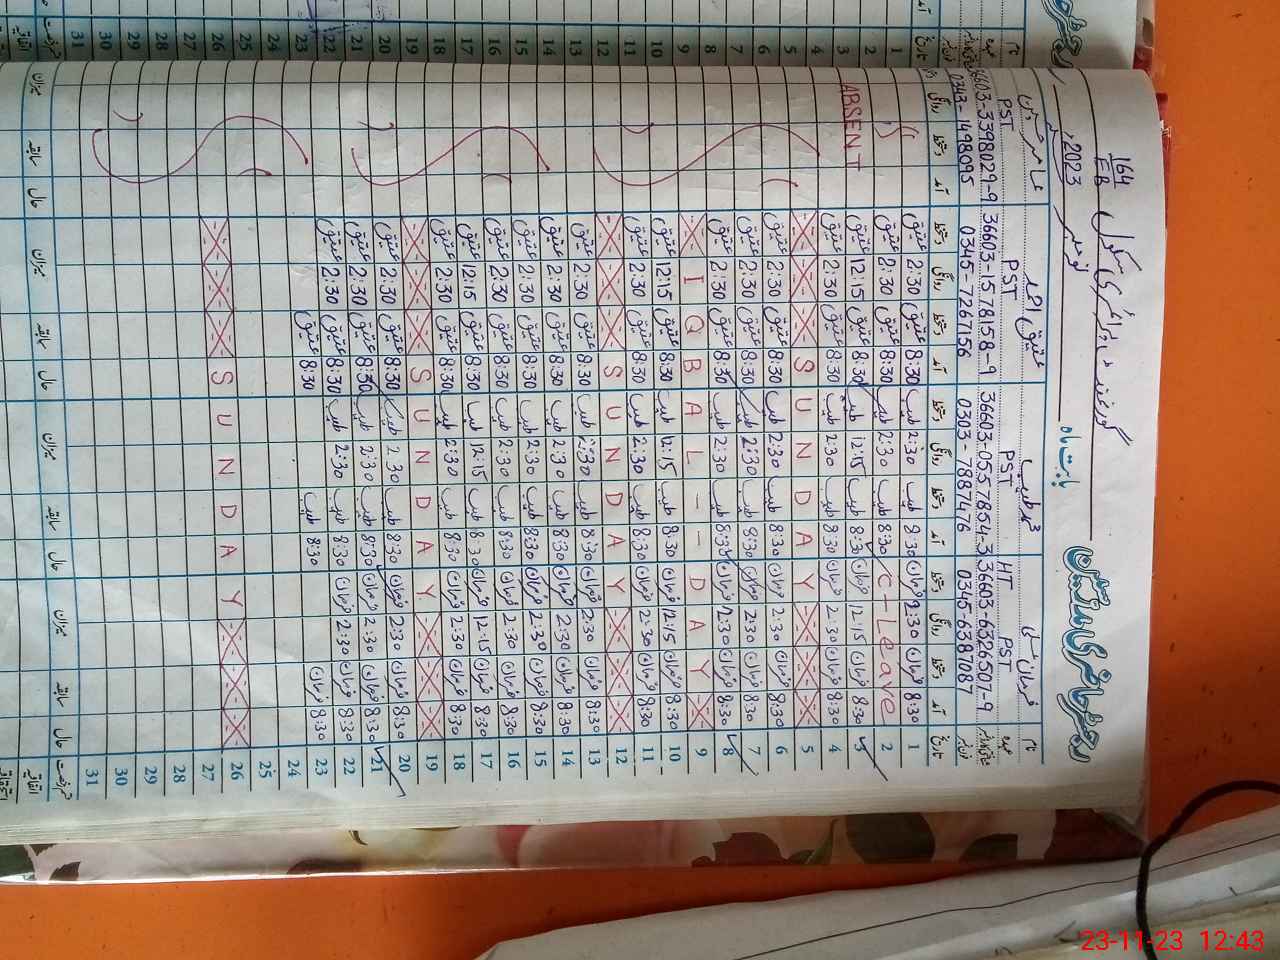 رجسٹر حاضری مدرسین
گورنمنٹ
سکول
164
EB
بابت ماہ
نومبر
2023ء
نام
عتیق احمد
محمد طیب
فرمان علی
عہدہ
PST
PST
PST HT
PST
36603-3398029-9
36603-1578158-9
36603-0557854-3
36603-6326507-9
0343-1498095
0345-7267156
0303-7887476
0345-6387087
تاریخ آمد دستخط روانگی دستخط آمد دستخط روانگی دستخط آمد دستخط روانگی دستخط آمد دستخط روانگی دستخط
1 8:30 فرمان 2:30 فرمان 8:30 طیب 2:30 طیب 8:30 عتیق 2:30 عتیق
2 C-Leave 8:30 طیب 2:30 طیب 8:30 عتیق 2:30 عتیق
3 8:30 فرمان 12:15 فرمان 8:30 طیب 12:15 طیب 8:30 عتیق 12:15 عتیق
4 8:30 فرمان 2:30 فرمان 8:30 طیب 2:30 طیب 8:30 عتیق 2:30 عتیق
ABSENT
5 SUNDAY
6 8:30 فرمان 2:30 فرمان 8:30 طیب 2:30 طیب 8:30 عتیق 2:30 عتیق
7 8:30 فرمان 2:30 فرمان 8:30 طیب 2:30 طیب 8:30 عتیق 2:30 عتیق
8 8:30 فرمان 2:30 فرمان 8:30 طیب 2:30 طیب 8:30 عتیق 2:30 عتیق
9 IQBAL--DAY
10 8:30 فرمان 12:15 فرمان 8:30 طیب 12:15 طیب 8:30 عتیق 12:15 عتیق
11 8:30 فرمان 2:30 فرمان 8:30 طیب 2:30 طیب 8:30 عتیق 2:30 عتیق
12 SUNDAY
13 8:30 فرمان 2:30 فرمان 8:30 طیب 2:30 طیب 8:30 عتیق 2:30 عتیق
14 8:30 فرمان 2:30 فرمان 8:30 طیب 2:30 طیب 8:30 عتیق 2:30 عتیق
15 8:30 فرمان 2:30 فرمان 8:30 طیب 2:30 طیب 8:30 عتیق 2:30 عتیق
16 8:30 فرمان 2:30 فرمان 8:30 طیب 2:30 طیب 8:30 عتیق 2:30 عتیق
17 8:30 فرمان 12:15 فرمان 8:30 طیب 12:15 طیب 8:30 عتیق 12:15 عتیق
18 8:30 فرمان 2:30 فرمان 8:30 طیب 2:30 طیب 8:30 عتیق 2:30 عتیق
19 SUNDAY
20 8:30 فرمان 2:30 فرمان 8:30 طیب 2:30 طیب 8:30 عتیق 2:30 عتیق
21 8:30 فرمان 2:30 فرمان 8:30 طیب 2:30 طیب 8:30 عتیق 2:30 عتیق
22 8:30 فرمان 2:30 فرمان 8:30 طیب 2:30 طیب 8:30 عتیق 2:30 عتیق
23 8:30 فرمان 8:30 طیب 8:30 عتیق
24
25
26 SUNDAY
27
28
29
30
31
حال سابقہ میزان حال سابقہ میزان حال سابقہ میزان حال سابقہ میزان
23-11-23 12:43